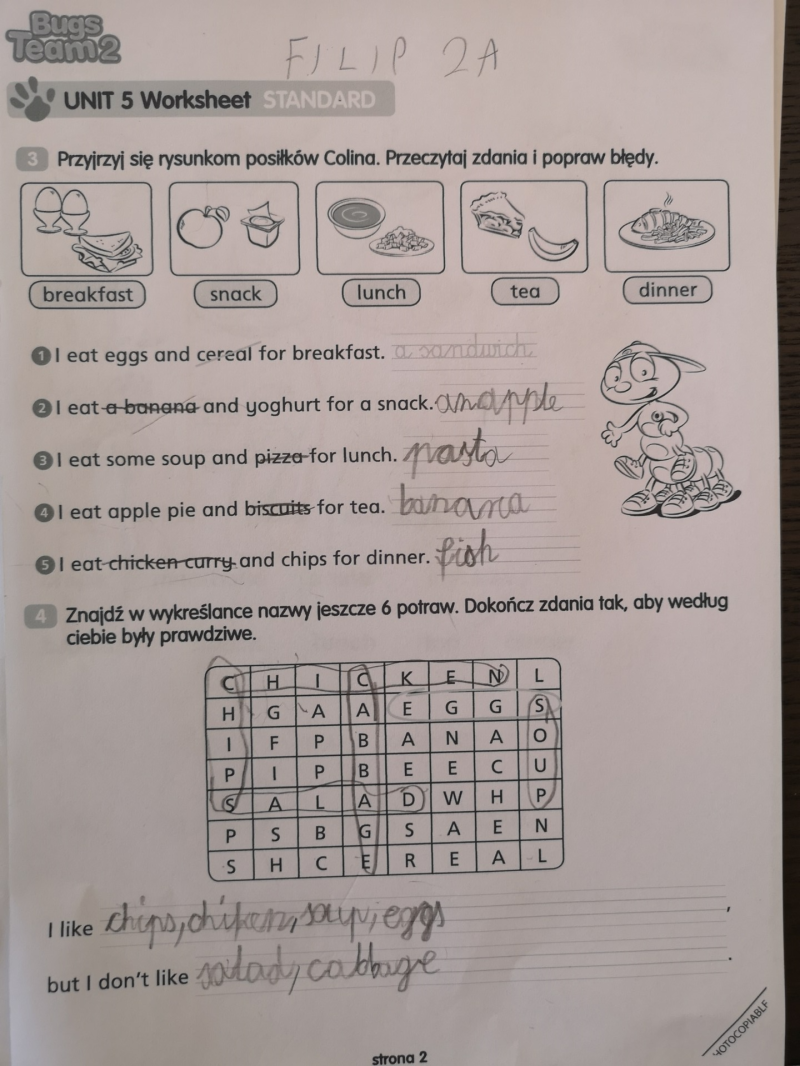 Bugs
Team 2
FILIP 2A
UNIT 5 Worksheet STANDARD
3 Przyjrzyj się rysunkom posiłków Colina. Przeczytaj zdania i popraw błędy.
breakfast snack lunch tea dinner
1 I eat eggs and cereal for breakfast. a sandwich
2 I eat a banana and yoghurt for a snack. an apple
3 I eat some soup and pizza for lunch. pasta
4 I eat apple pie and biscuits for tea. banana
5 I eat chicken curry and chips for dinner. fish
4 Znajdź w wykreślance nazwy jeszcze 6 potraw. Dokończ zdania tak, aby według
ciebie były prawdziwe.
C H I C K E N L
H G A A E G G S
I F P B A N A O
P I P B E E C U
S A L A D W H P
P S B G S A E N
S H C E R E A L
I like chips, chiken, soup, eggs ,
but I don't like salad, cabbage .
HOTOCOPIABLE
strona 2